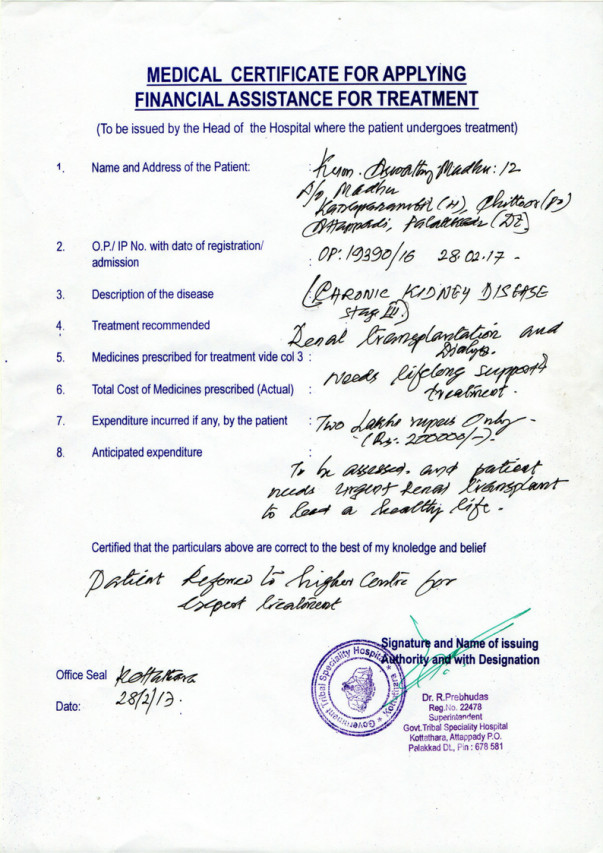 MEDICAL CERTIFICATE FOR APPLYING
FINANCIAL ASSISTANCE FOR TREATMENT
(To be issued by the Head of the Hospital where the patient undergoes treatment)
1. Name and Address of the Patient: : Kum. Aswathy Madhu: 12
D/o Madhu
(H), Chittoor (PO)
Attappadi, Palakkad (DT)
2. O.P./ IP No. with date of registration/
admission : OP: 19390/16 28.02.17 -
3. Description of the disease : (CHRONIC KIDNEY DISEASE
Stage III)
4. Treatment recommended Renal transplantation and
Dialysis.
5. Medicines prescribed for treatment vide col 3 :
Needs lifelong support &
treatment.
6. Total Cost of Medicines prescribed (Actual) :
7. Expenditure incurred if any, by the patient : Two Lakhs rupees Only -
(Rs. 200000/-).
8. Anticipated expenditure
To be assessed. and patient
needs urgent Renal transplant
to lead a healthy life.
Certified that the particulars above are correct to the best of my knoledge and belief
Patient Referred to higher Centre for
expert treatment
Signature and Name of issuing
Authority and with Designation
Office Seal Kottathara
Date: 28/2/17.
Government Tribal Speciality Hospital * Kottathara *
Dr. R.Prebhudas
Reg.No. 22478
Superintendent
Govt.Tribal Speciality Hospital
Kottathara, Attappady P.O.
Palakkad Dt., Pin : 678 581